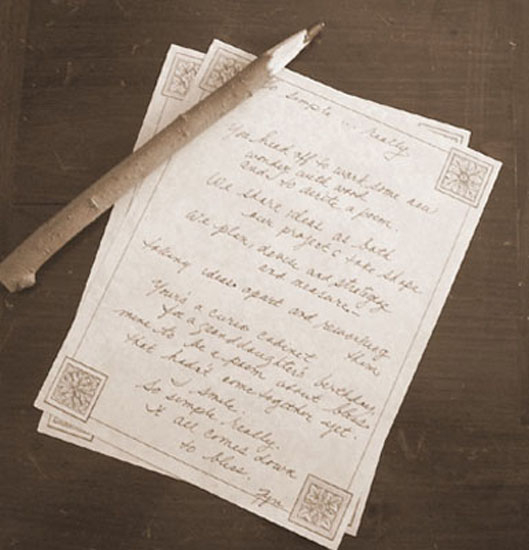 So simple ... really
You head off to work some new
wonder with wood
and I to write a poem.
We share ideas as both
our projects take shape
We plan, devise and strategize
and measure –
taking ideas apart and reworking
them
Yours a curio cabinet
for a granddaughter's birthday,
mine to be a poem about bliss
that hadn't come together yet.
I smile.
So simple really.
It all comes down
to bliss.